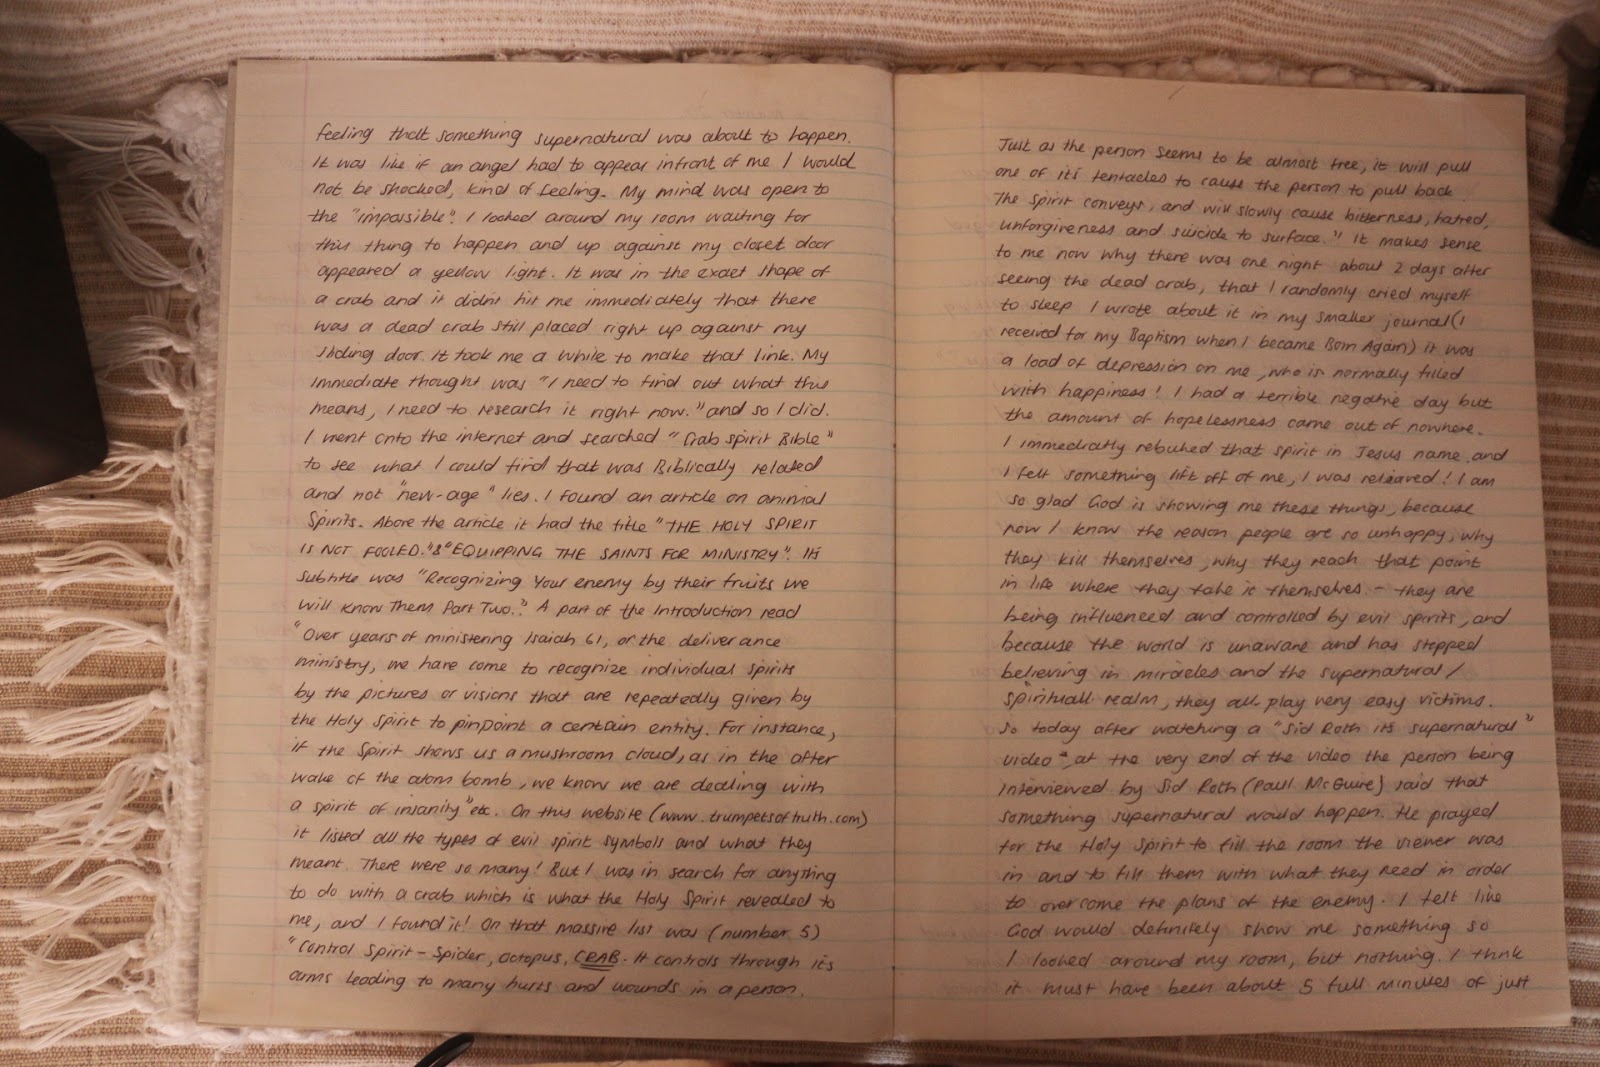 feeling that something supernatural was about to happen.
It was like if an angel had to appear infront of me I would
not be shocked, kind of feeling. My mind was open to
the "impossible". I looked around my room waiting for
this thing to happen and up against my closet door
appeared a yellow light. It was in the exact shape of
a crab and it didn't hit me immediately that there
was a dead crab still placed right up against my
sliding door. It took me a while to make that link. My
immediate thought was "I need to find out what this
means, I need to research it right now." and so I did.
I went onto the internet and searched "Crab spirit Bible"
to see what I could find that was Biblically related
and not "new-age" lies. I found an article on animal
Spirits. Above the article it had the title "THE HOLY SPIRIT
IS NOT FOOLED." & "EQUIPPING THE SAINTS FOR MINISTRY". It's
subtitle was "Recognizing Your enemy by their fruits we
will know Them Part Two." A part of the Introduction read
"Over years of ministering Isaiah 61, or the deliverance
ministry, we have come to recognize individual spirits
by the pictures or visions that are repeatedly given by
the Holy Spirit to pinpoint a certain entity. For instance,
if the Spirit shows us a mushroom cloud, as in the after
wake of the atom bomb, we know we are dealing with
a spirit of insanity" etc. On this website (www.trumpetsoftruth.com)
it listed all the types of evil spirit symbols and what they
meant. There were so many! But I was in search for anything
to do with a crab which is what the Holy Spirit revealed to
me, and I found it! On that massive list was (number 5)
"Control Spirit - Spider, Octopus, CRAB. It controls through it's
arms leading to many hurts and wounds in a person.
Just as the person seems to be almost free, it will pull
one of it's tentacles to cause the person to pull back.
The spirit conveys, and will slowly cause bitterness, hatred,
unforgiveness and suicide to surface." It makes sense
to me now why there was one night about 2 days after
seeing the dead crab, that I randomly cried myself
to sleep. I wrote about it in my smaller journal (I
received for my Baptism when I became Born Again) it was
a load of depression on me, who is normally filled
with happiness! I had a terrible negative day but
the amount of hopelessness came out of nowhere.
I immediatly rebuked that spirit in Jesus name and
I felt something lift off of me, I was relieved! I am
so glad God is showing me these things, because
now I know the reason people are so unhappy, why
they kill themselves, why they reach that point
in life where they take it themselves - they are
being influenced and controlled by evil spirits, and
because the world is unaware and has stopped
believing in miracles and the supernatural/
spirituall realm, they all play very easy victims.
So today after watching a "Sid Roth it's supernatural"
video, at the very end of the video the person being
interviewed by Sid Roth (Paul McGuire) said that
something supernatural would happen. He prayed
for the Holy Spirit to fill the room the viewer was
in and to fill them with what they need in order
to overcome the plans of the enemy. I felt like
God would definitely show me something so
I looked around my room, but nothing. I think
it must have been about 5 full minutes of just